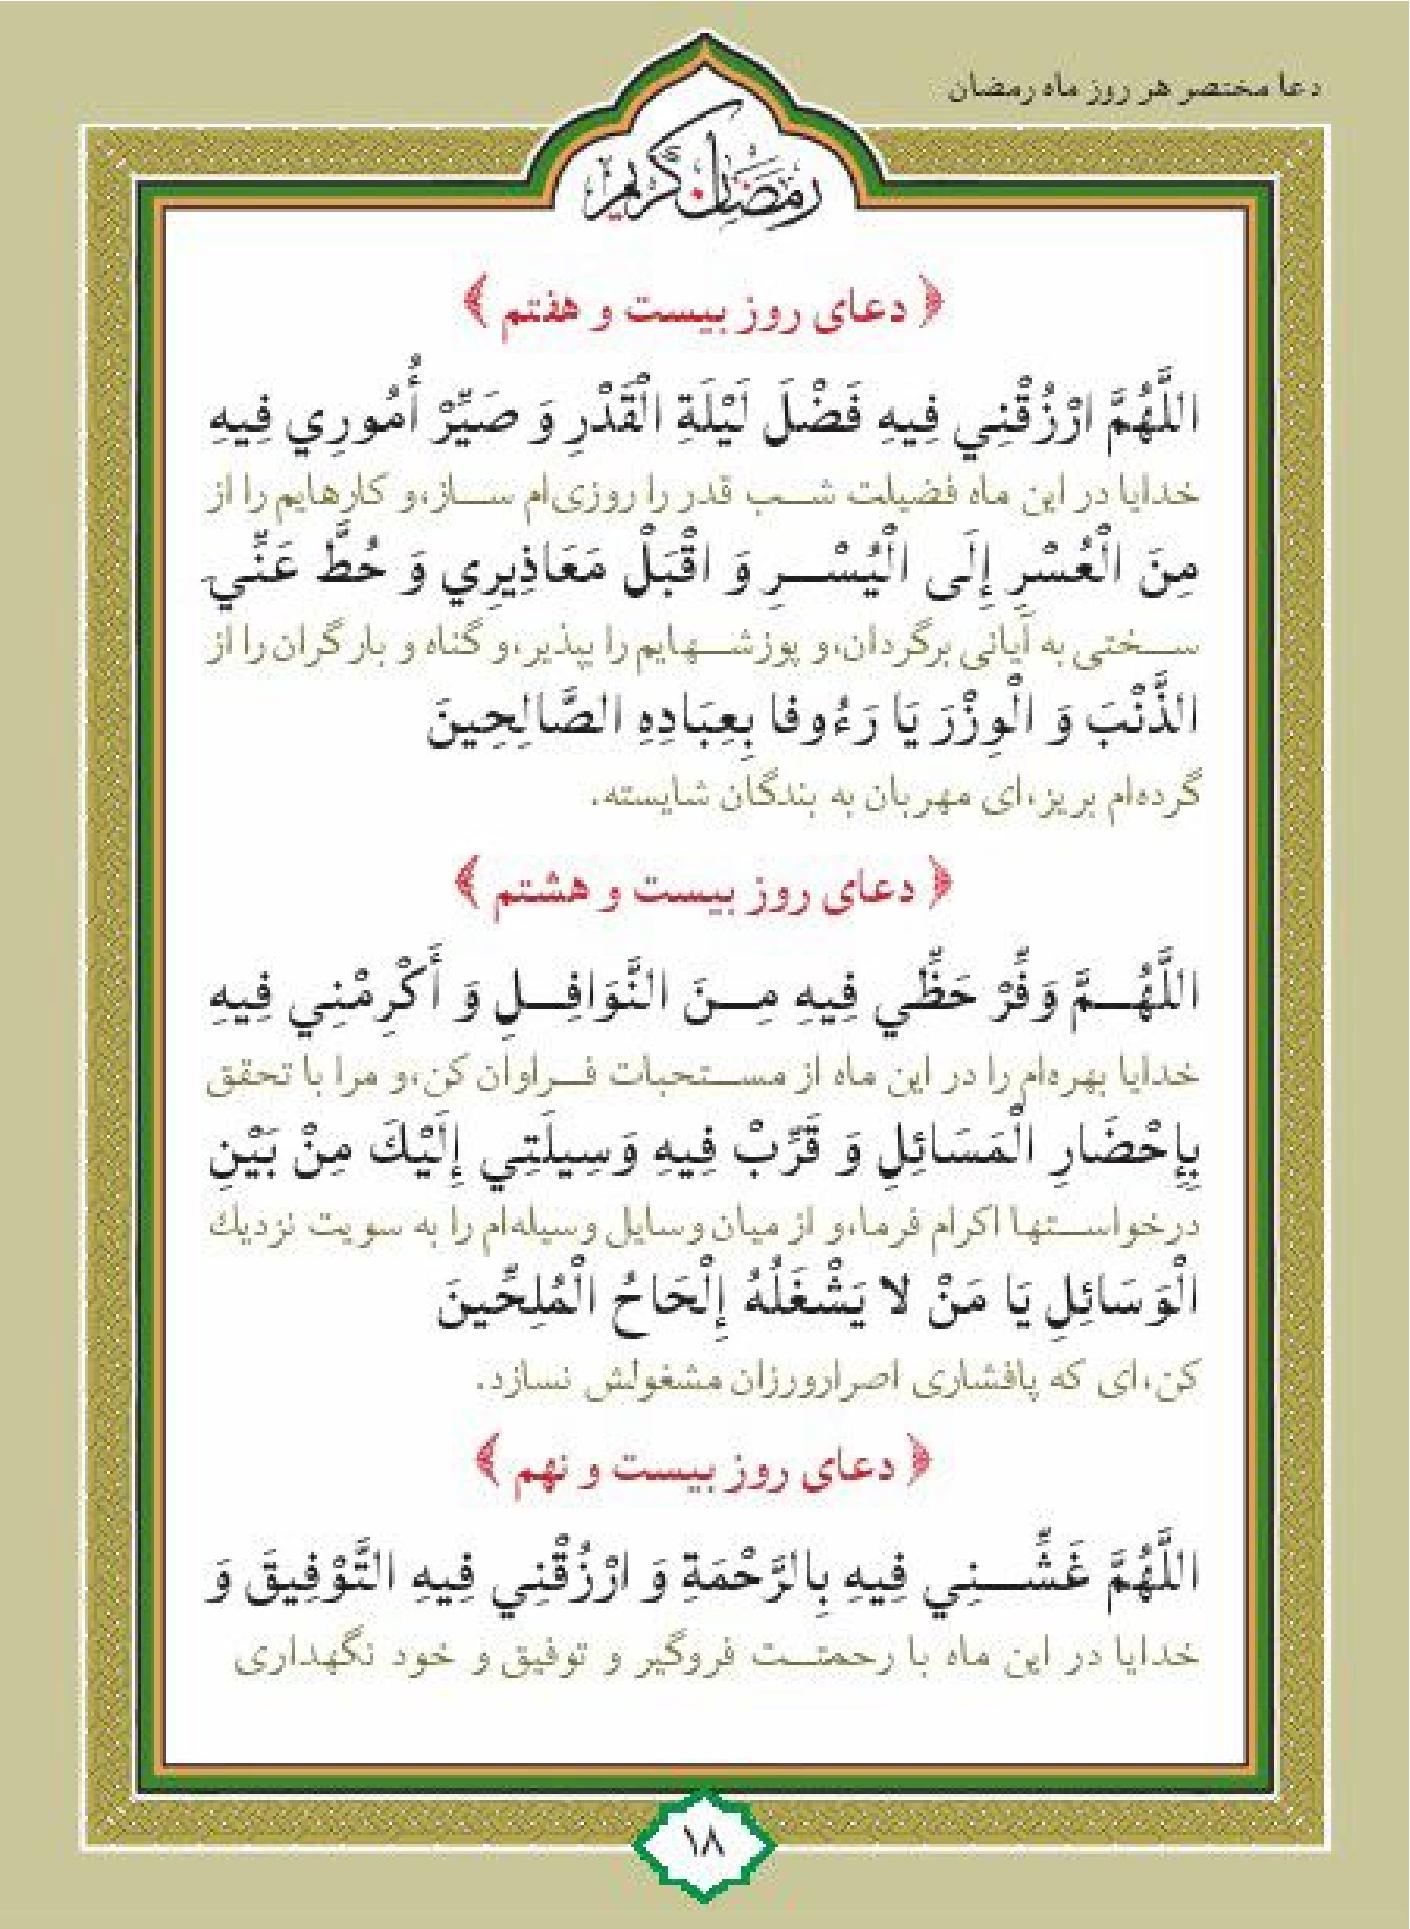 دعا مختصر هر روز ماه رمضان
رمضان کریم
﴿ دعای روز بیست و هفتم ﴾
اللَّهُمَّ ارْزُقْنِي فِيهِ فَضْلَ لَيْلَةِ الْقَدْرِ وَ صَيِّرْ أُمُورِي فِيهِ
خدایا در این ماه فضیلت شب قدر را روزی‌ام ساز،و کارهایم را از
مِنَ الْعُسْرِ إِلَى الْيُسْرِ وَ اقْبَلْ مَعَاذِيرِي وَ حُطَّ عَنِّي
سختی به آیانی برگردان،و پوزشهایم را بپذیر،و گناه و بار گران را از
الذَّنْبَ وَ الْوِزْرَ يَا رَءُوفا بِعِبَادِهِ الصَّالِحِينَ
گرده‌ام بریز،ای مهربان به بندگان شایسته.
﴿ دعای روز بیست و هشتم ﴾
اللَّهُمَّ وَفِّرْ حَظِّي فِيهِ مِنَ النَّوَافِلِ وَ أَكْرِمْنِي فِيهِ
خدایا بهره‌ام را در این ماه از مستحبات فراوان کن،و مرا با تحقق
بِإِحْضَارِ الْمَسَائِلِ وَ قَرِّبْ فِيهِ وَسِيلَتِي إِلَيْكَ مِنْ بَيْنِ
درخواستها اکرام فرما،و از میان وسایل وسیله‌ام را به سویت نزدیك
الْوَسَائِلِ يَا مَنْ لا يَشْغَلُهُ إِلْحَاحُ الْمُلِحِّينَ
کن،ای که پافشاری اصرارورزان مشغولش نسازد.
﴿ دعای روز بیست و نهم ﴾
اللَّهُمَّ غَشِّنِي فِيهِ بِالرَّحْمَةِ وَ ارْزُقْنِي فِيهِ التَّوْفِيقَ وَ
خدایا در این ماه با رحمتت فروگیر و توفیق و خود نگهداری
۱۸